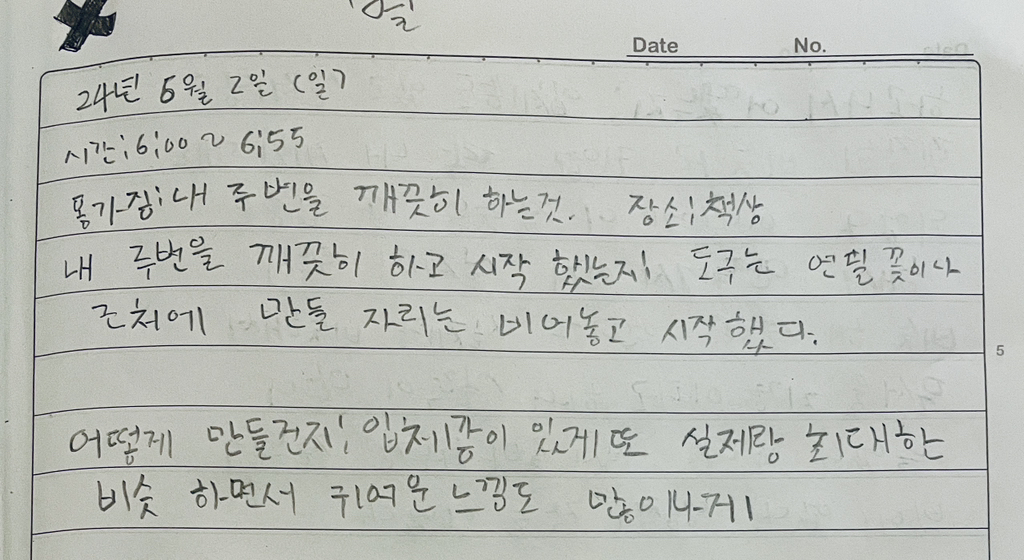 Date No.
24년 5월 2일 (일)
시간;6;00 ~ 6;55
몸가짐;내 주변을 깨끗히 하는것. 장소;책상
내 주변을 깨끗히 하고 시작 했는지; 도구는 연필 꽂이나
근처에 만들 자리는 비어놓고 시작했다.
5
어떻게 만들건지; 입체감이 있게 또 실제랑 최대한
비슷 하면서 귀여운 느낌도 많이나게